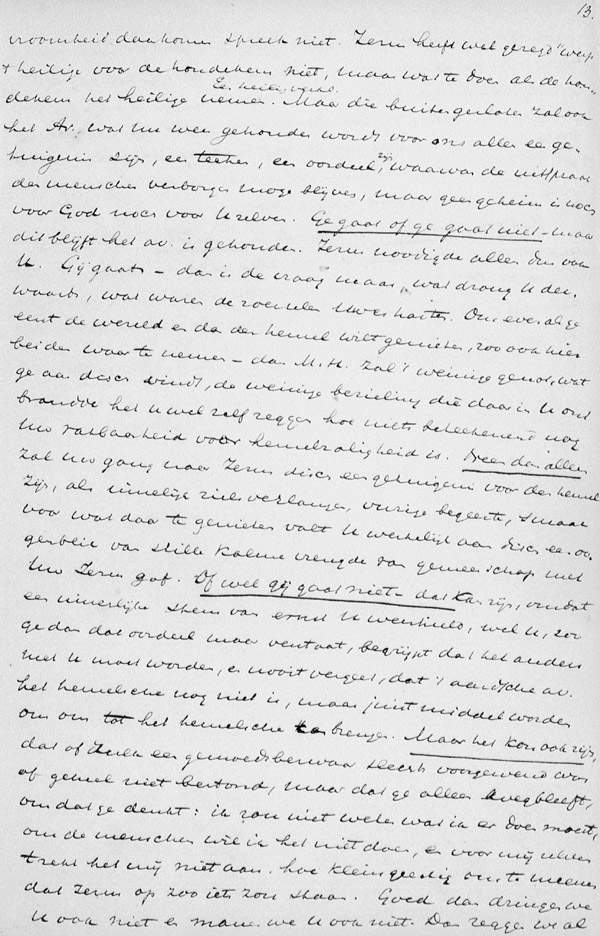 13.
vroomheid daarboven spreek niet. Jezus heeft wel gezegd "werp
't heilige voor de hondekens niet, maar wat te doen als de hon-
dekens het heilige nemen. Maar die buitengesloten zal ook
het Av. wat nu weer gehouden wordt voor ons allen een ge-
tuigenis zijn, een teeken, een oordeel, waarvan de uitspraak
den menschen verborgen moge blijven, maar geen geheim is noch
voor God noch voor U zelven. Ge gaat of ge gaat niet - maar
dit blijft het av. is gehouden. Jezus noodigde allen dus ook
U. Gij gaat - dan is de vraag maar, wat drong U der-
waarts, wat waren de roerselen Uwes harten. Om even als ge
eerst de wereld en dan den hemel wilt genieten, zoo ook hier
beiden waar te nemen - dan M. H. zal 't weinige genot, wat
ge aan disch vindt, de weinige bezieling die daar in U ont
brandde het U wel zelf zeggen hoe niets beteekenend nog
Uw vatbaarheid voor hemelzaligheid is. Neen dan alleen
zal Uw gang naar Jezus disch een getuigenis voor den hemel
zijn, als innerlijk zielsverlangen, vurige begeerte, smaak
voor wat daar te genieten valt U werkelijk aan disch een oo-
genblik van stille kalme vreugde van gemeenschap met
Uw Jezus gaf. Of wel gij gaat niet - dat kan zijn, omdat
een innerlijke stem van ernst U weerhield, wel U, zoo
ge dan dat oordeel maar verstaat, begrijpt dat het anders
met U moet worden, en nooit vergeet, dat 't aardsche av.
het hemelsche nog niet is, maar juist middel worden
om om tot het hemelsche te brengen. Maar het kon ook zijn,
dat of zulk een gemoedsbezwaar slechts voorgewend was
of geheel niet bestond, maar dat ge alleen wegbleeft,
omdat ge denkt: ik zou niet weten wat ik er doen moest,
om de menschen wil ik het niet doen, en voor mij zelven
trekt het mij niet aan. hoe kleingeestig om te meenen
dat Jezus op zoo iets zou staan. Goed dan dringen we
U ook niet en manen we U ook niet. Dan zeggen we al